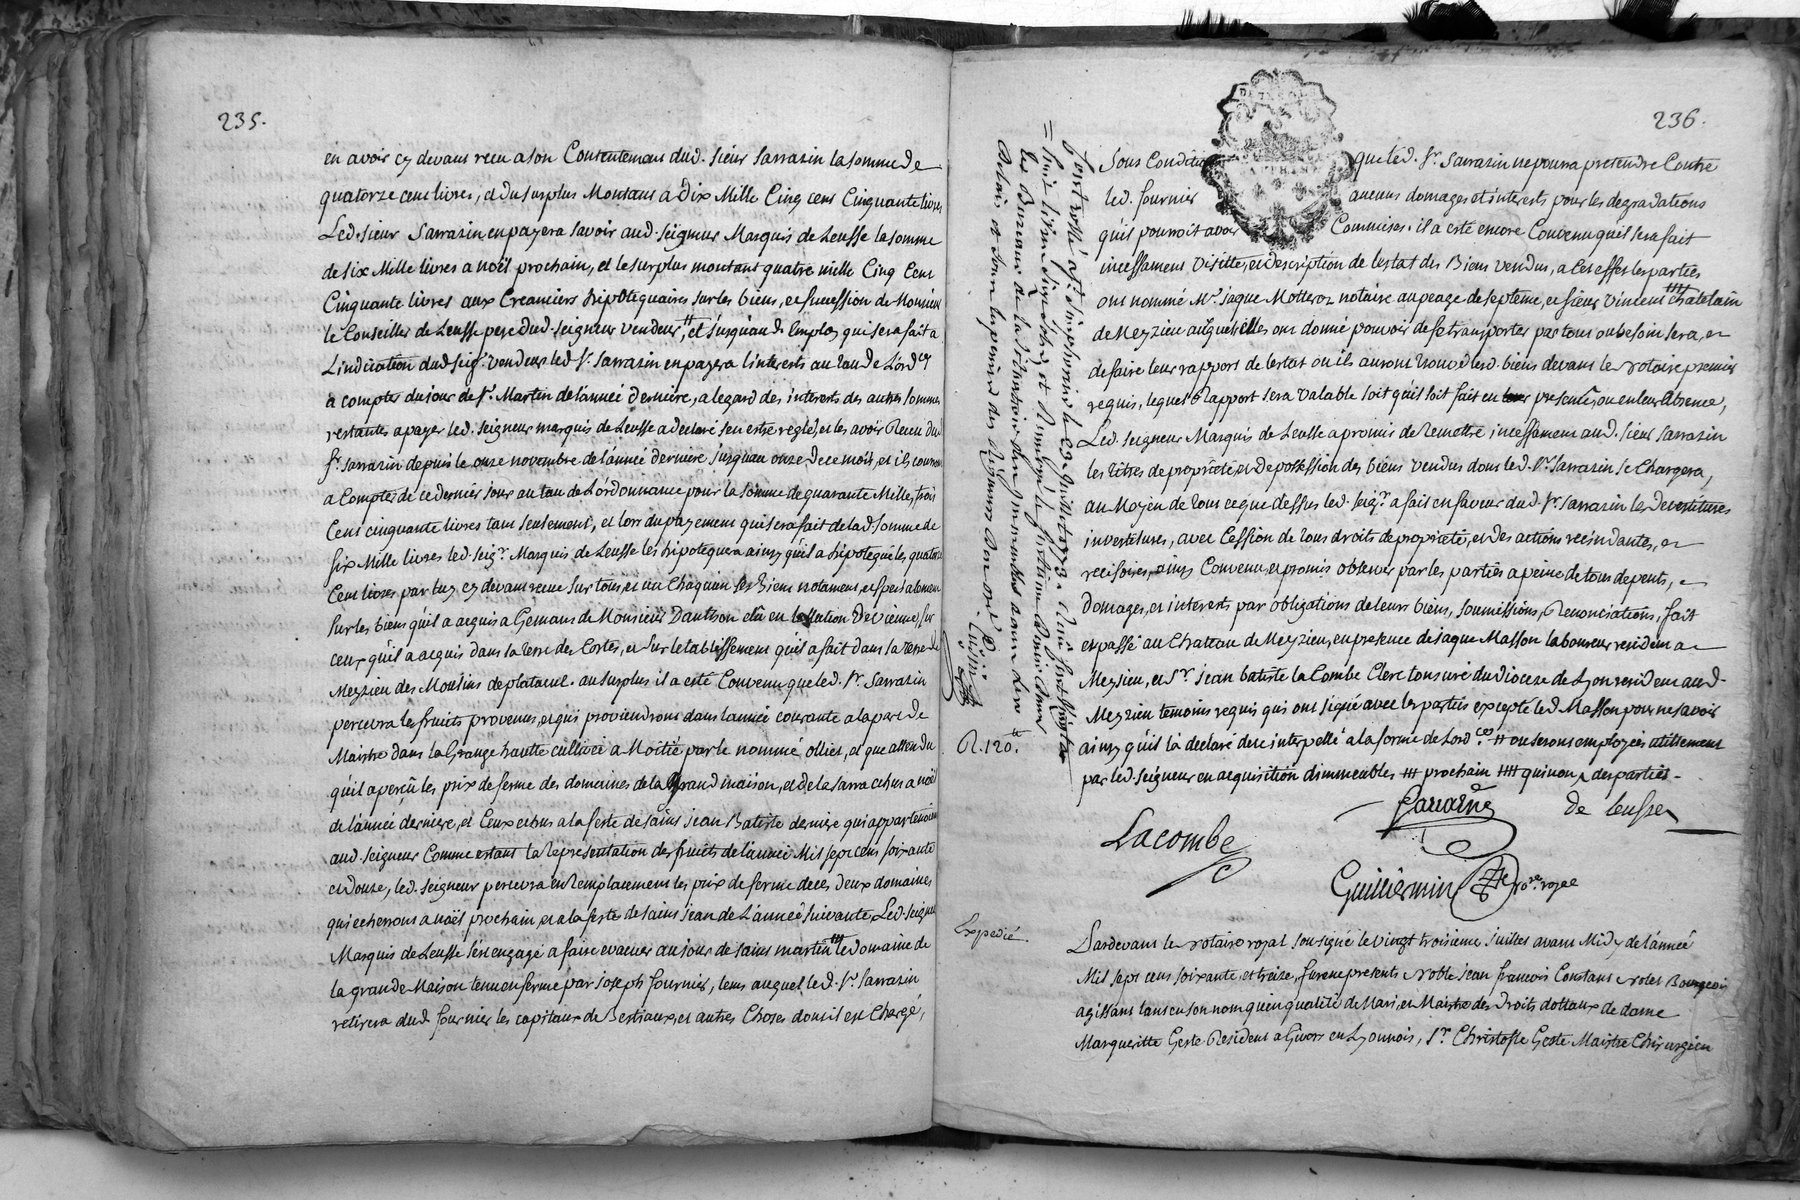 235.
en avoir cy devant receu a son Contentement dud. sieur Sarrazin la somme de
quatorze cent livres, et du surplus Montant a dix Mille Cinq cens Cinquante livres
Led. sieur Sarrazin en payera savoir aud. seigneur Marquis de Leusse la somme
de six Mille livres a noël prochain, et le surplus montant quatre mille Cinq Cent
Cinquante livres aux Creanciers hipotequaires sur les biens, et succession de Monsieur
le Conseiller de Leusse pere dud. seigneur vendeur, # et jusqu'au d. Employ qui sera fait a
L'indication dud. seigr. vendeur led. sr. Sarrazin en payera l'interests au tau de L'ordce
a compter du jour de st. Martin de l'année derniere, a legard des interests des autres sommes
restantes a payer led. seigneur marquis de Leusse a declaré s'en estre reglé, et les avoir Receu dud.
sr. Sarrazin depuis le onze novembre de l'année derniere jusquau onze de ce mois, et ils courront
a Compter de ce dernier jour au tau de L'ordonnance pour la somme de quarante Milles, trois
Cent cinquante livres tant seulement, et lors du payement qui sera fait de lad. somme de
six Mille livres led. seigr. Marquis de Leusse les hipotequera ainsy qu'il a hipotequé les quatorze
Cent livres par luy cy devant receue sur tous, et un Chaquun ses biens notament, et specialement
sur les biens qu'il a acquis a Gemans de Monsieur Danthon elû en lellation de vienne, sur
ceux qu'il a acquis dans la terre des Costes, et sur letablissement qu'il a fait dans la terre de
Meyzieu des Moulins de platacul. au surplus il a esté Convenu que led. sr. Sarrazin
percevra les fruits provenus, et qui proviendront dans lannée courante a la part de
Maistre dans la Grange hautte cultivée a Moitié par le nommé ollier, et que attendu
qu'il a perçû les prix de ferme des domaines de la Grand maison, et de la sarra echus a noël
de l'année derniere, et Ceux echus a la feste de saint jean Batiste derniere qui appartenoient
aud. seigneur Comme estant la representation des fruits de l'année Mil sept cens soixante
et douze, led. seigneur percevra en Remplacement les prix de ferme de ces deux domaines
qui echerront a noël prochain, et a la feste de saint jean de L'année suivante, Led. seigneur
Marquis de Leusse s'est engagé a faire evacuer au jour de saint martin ### le domaine de
la grande Maison tenu en ferme par joseph fournier, lors auquel led. sr. Sarrazin
retirera dud. fournier les capitaux de Bestiaux, et autres Choses dont il est Chargé,
236.
Sous Condition que led. sr. Sarrazin ne pourra pretendre Contre
led. fournier aucuns domages et interests pour les degradations
qu'il pourroit avoir Commises. il a esté encore Convenu qu'il sera fait
incessament visitte, et description de lestat des Biens vendus, a cet effet les parties
ont nommé Mr. jaque Motteroz notaire au peage de septeme, et sieur vincent #### chatelain
de Meyzieu auxquels elles ont donné pouvoir de se transporter par tout ou besoin sera, et
de faire leur rapport de lestat ou ils auront trouvé lesd. biens devant le Notaire premier
requis, lequel Rapport sera valable soit qu'il soit fait en leur presence, ou en leur absence,
Led. seigneur Marquis de Leusse a promis de Remettre incessament aud. sieur Sarrazin
les titres de proprieté, et de possession des biens vendus dont led. sr. Sarrazin se Chargera,
au Moyen de tout ce que dessus led. seigr. a fait en faveur dud. sr. Sarrazin les devestitures
investitures, avec Cession de tous droits de proprieté, et des actions recindantes, et
recisoires, ainsy Convenu, et promis observer par les parties a peine de tous depents,
domages, et interests par obligations de leurs biens, soumissions, Renonciations, fait
et passé au Chateau de Meyzieu, en presence de jaque Masson laboureur resident a
Meyzieu, et sr. jean batiste la Combe Clerc tonsuré du dioceze de Lyon resident aud.
Meyzieu temoins requis qui ont signé avec les parties excepté led. Masson pour ne savoir
ainsy qu'il la declaré de ce interpellé a la forme de Lordce. # ou seront employés utilement
par led. seigneur en acquisition dimmeubles ### prochain #### quinon des parties.
Sarrazin
de leusse
Lacombe
Guilliermin Nore. royal
= Controllé a St. Simphorien le 29. juillet 1773.
R. 120#
Expedié
Pardevant le Notaire royal soussigné le vingt troisieme juillet avant Midy de l'année
Mil sept cens soixante et treize, furent presents Noble jean francois Constant Bourgeois
agissant tant en son nom quen qualité de Mari, et Maistre des Droits dottaux de dame
Margueritte Geste Resident a Givors en Lyonnois, sr. Christofle Geste Maistre Chirurgien